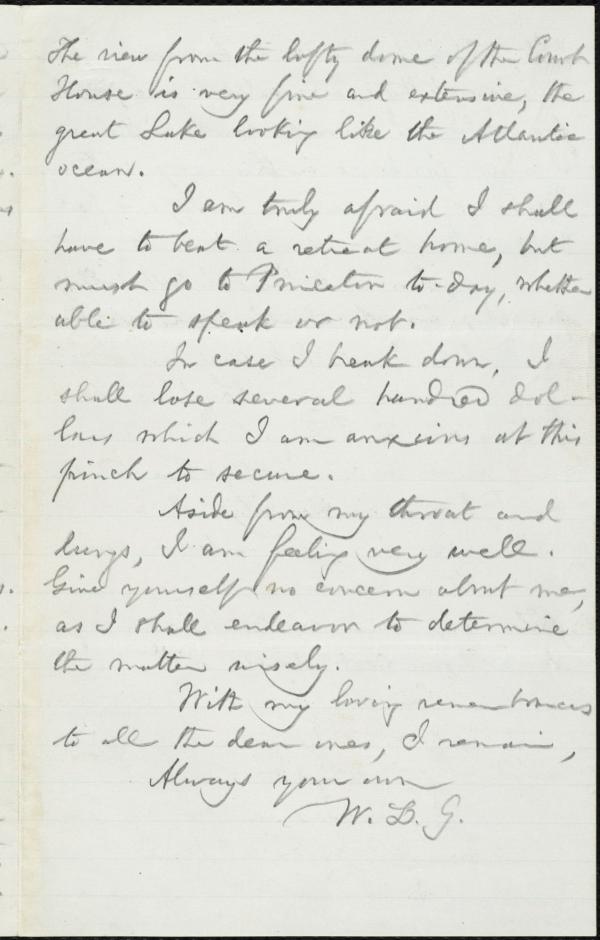 The view from the lofty dome of the Court
House is very fine and extensive, the
great Lake looking like the Atlantic
ocean.
I am truly afraid I shall
have to beat a retreat home, but
must go to Princeton to-day, whether
able to speak or not.
In case I break down, I
shall lose several hundred dol-
lars which I am anxious at this
pinch to secure.
Aside from my throat and
lungs, I am feeling very well.
Give yourself no concern about me,
as I shall endeavor to determine
the matter wisely.
With my loving remembrances
to all the dear ones, I remain,
Always your own
W. L. G.